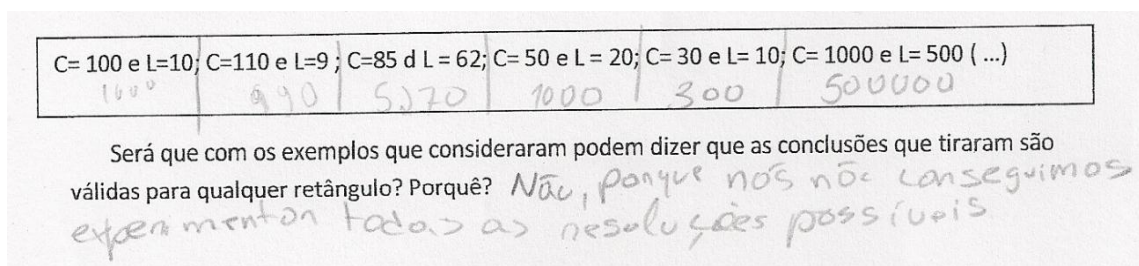 C= 100 e L=10; C=110 e L=9 ; C=85 d L = 62; C= 50 e L = 20; C= 30 e L= 10; C= 1000 e L= 500 ( ...)
1000 990 5270 1000 300 500000
Será que com os exemplos que consideraram podem dizer que as conclusões que tiraram são
válidas para qualquer retângulo? Porquê? Não, porque nós não conseguimos
experimentar todas as resoluções possíveis